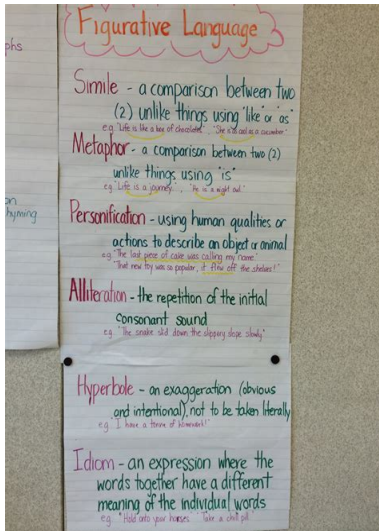 Figurative Language
phs
on
hyming
Simile - a comparison between two
(2) unlike things using "like" or "as"
e.g. "Life is like a box of chocolates." "She is as cool as a cucumber."
Metaphor - a comparison between two (2)
unlike things using "is"
e.g. "Life is a journey.", "He is a night owl."
Personification - using human qualities or
actions to describe an object or animal
e.g. "The last piece of cake was calling my name."
"That new toy was so popular, it flew off the shelves!"
Alliteration - the repetition of the initial
consonant sound
e.g. "The snake slid down the slippery slope slowly"
Hyperbole - an exaggeration (obvious
and intentional), not to be taken literally
e.g. "I have a tonne of homework!"
Idiom - an expression where the
words together have a different
meaning of the individual words
e.g. "Hold onto your horses" "Take a chill pill"